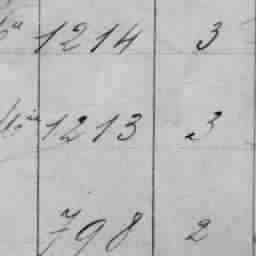 1214 3
1213 3
798 2